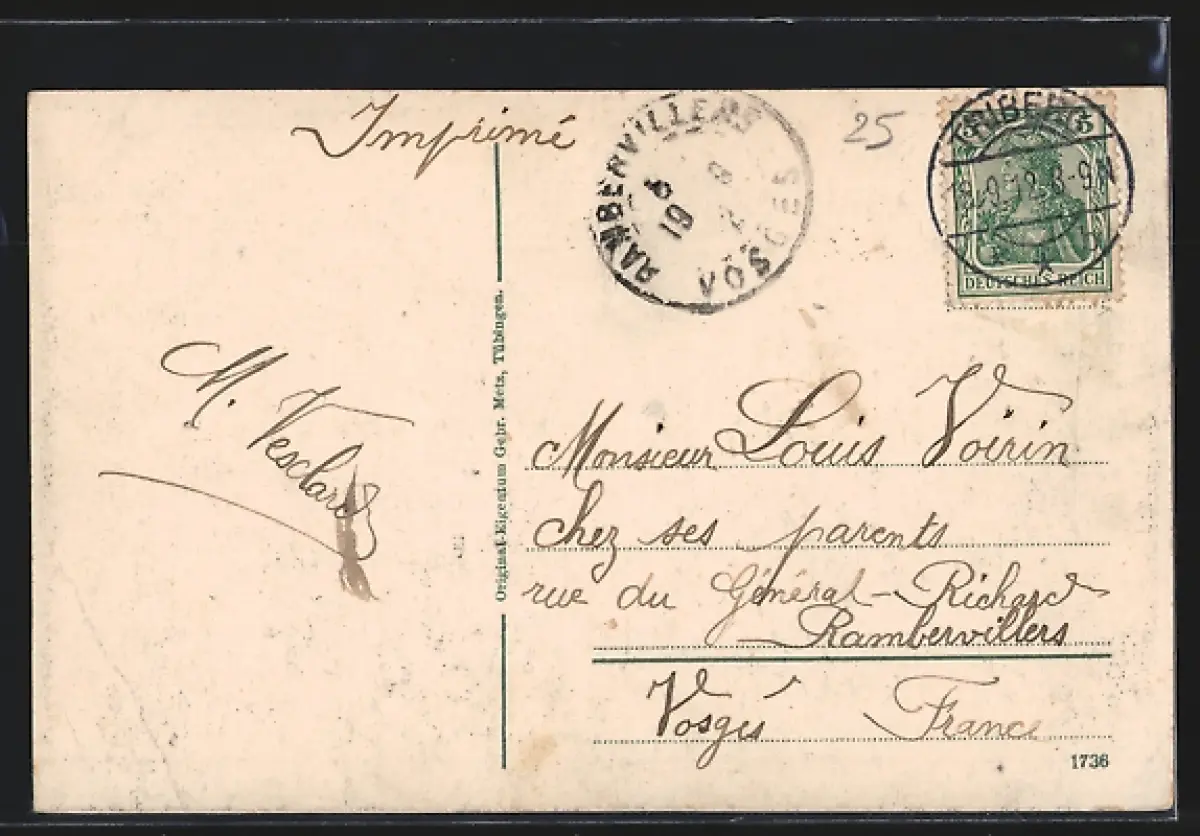 Imprimé
RAMBERVILLERS
VOSGES
19
25
TRIBERG
8-9N
DEUTSCHES REICH
M. Vesclard
Original-Eigentum Gebr. Metz, Tübingen.
Monsieur Louis Voirin
chez ses parents
rue du Général-Richard
Rambervillers
Vosges France
1736